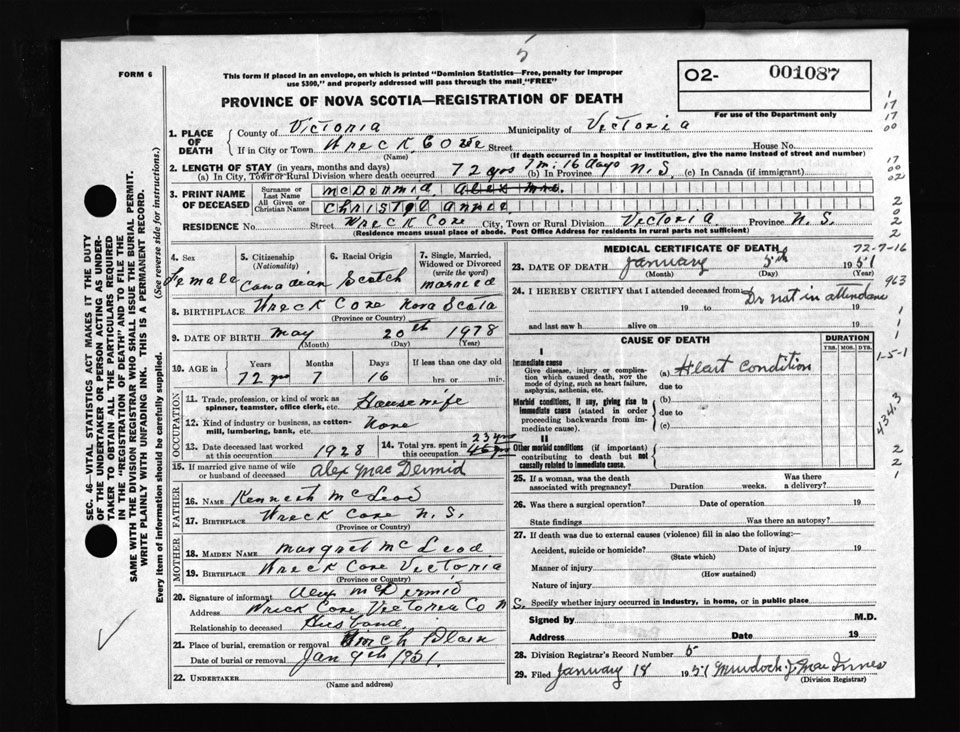 5
FORM 6
This form if placed in an envelope, on which is printed "Dominion Statistics—Free, penalty for improper
use $300," and properly addressed will pass through the mail "FREE"
O2- 001087
For use of the Department only
PROVINCE OF NOVA SCOTIA—REGISTRATION OF DEATH
1. PLACE OF DEATH { County of Victoria Municipality of Victoria
If in City or Town Wreck Cove Street House No.
(Name) (If death occurred in a hospital or institution, give the name instead of street and number)
2. LENGTH OF STAY (in years, months and days)
(a) In City, Town or Rural Division where death occurred 72 yrs 7 m. 16 days (b) In Province N.S. (c) In Canada (if immigrant)
3. PRINT NAME OF DECEASED { Surname or Last Name McDermid Alex Mrs.
All Given or Christian Names Christol Annie
RESIDENCE No. Street Wreck Cove City, Town or Rural Division Victoria Province N.S.
(Residence means usual place of abode. Post Office Address for residents in rural parts not sufficient)
4. Sex Female
5. Citizenship (Nationality) Canadian
6. Racial Origin Scotch
7. Single, Married, Widowed or Divorced (write the word) married
8. BIRTHPLACE Wreck Cove Nova Scota
(Province or Country)
9. DATE OF BIRTH May 20th 1978
(Month) (Day) (Year)
10. AGE in { Years Months Days If less than one day old
72 yrs 7 16 hrs. or min.
OCCUPATION
11. Trade, profession, or kind of work as spinner, teamster, office clerk, etc. Housewife
12. Kind of industry or business, as cotton-mill, lumbering, bank, etc. None
13. Date deceased last worked at this occupation 1928
14. Total yrs. spent in this occupation 23 yrs 46 yrs
15. If married give name of wife or husband of deceased Alex Mac Dermid
FATHER
16. NAME Kenneth McLeod
17. BIRTHPLACE Wreck Cove N.S.
(Province or Country)
MOTHER
18. MAIDEN NAME Margret McLeod
19. BIRTHPLACE Wreck Cove Victoria
(Province or Country)
20. Signature of informant Alex McDermid
Address Wreck Cove Victoria Co N S.
Relationship to deceased Husband
21. Place of burial, cremation or removal Birch Plain
Date of burial or removal Jan 9th 1951.
22. UNDERTAKER
(Name and address)
MEDICAL CERTIFICATE OF DEATH 72-7-16
23. DATE OF DEATH January 5th 1951
(Month) (Day) (1)
24. I HEREBY CERTIFY that I attended deceased from: Dr not in attendance
19 to 19
and last saw h alive on 19
CAUSE OF DEATH DURATION
YRS. MOS. DYS.
I
Immediate cause
Give disease, injury or complication which caused death, not the mode of dying, such as heart failure, asphyxia, asthenia, etc.
(a) Heart condition
due to
Morbid conditions, if any, giving rise to immediate cause (stated in order proceeding backwards from immediate cause).
(b)
due to
(c)
II
Other morbid conditions (if important) contributing to death but not causally related to immediate cause.
25. If a woman, was the death associated with pregnancy? Duration weeks. Was there a delivery?
26. Was there a surgical operation? Date of operation 19
State findings Was there an autopsy?
27. If death was due to external causes (violence) fill in also the following:—
Accident, suicide or homicide? Date of injury 19
(State which)
Manner of injury
(How sustained)
Nature of injury
Specify whether injury occurred in industry, in home, or in public place
Signed by M.D.
Address Date 19
28. Division Registrar's Record Number 5
29. Filed January 18 1951 Murdock J. MacInnes
(Division Registrar)
SEC. 46—VITAL STATISTICS ACT MAKES IT THE DUTY
OF THE UNDERTAKER OR PERSON ACTING AS UNDER-
TAKER TO OBTAIN ALL THE PARTICULARS REQUIRED
IN THE "REGISTRATION OF DEATH" AND TO FILE THE
SAME WITH THE DIVISION REGISTRAR WHO SHALL ISSUE THE BURIAL PERMIT.
WRITE PLAINLY WITH UNFADING INK. THIS IS A PERMANENT RECORD.
Every item of information should be carefully supplied. (See reverse side for instructions.)
1
17
17
00
17
00
02
2
0
2
2
963
1
1
1
1-5-1
434.3
2
2